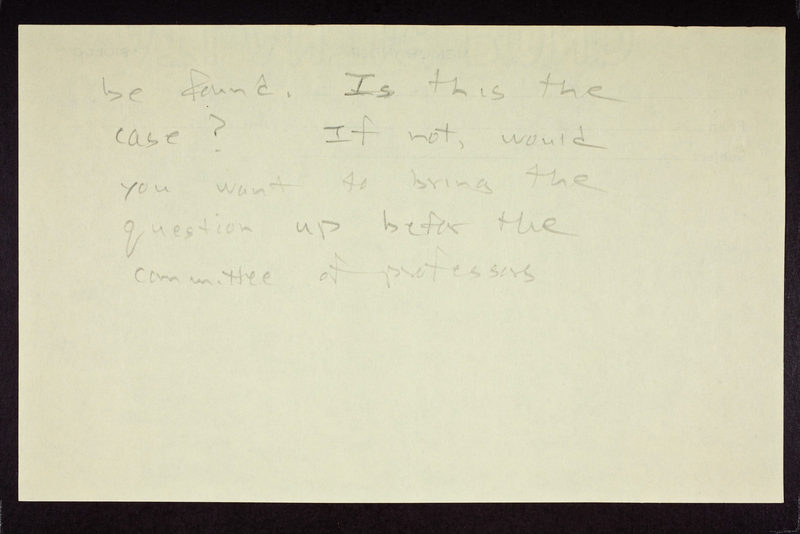 be found. Is this the
case? If not, would
you want to bring the
question up befor the
committee of professors